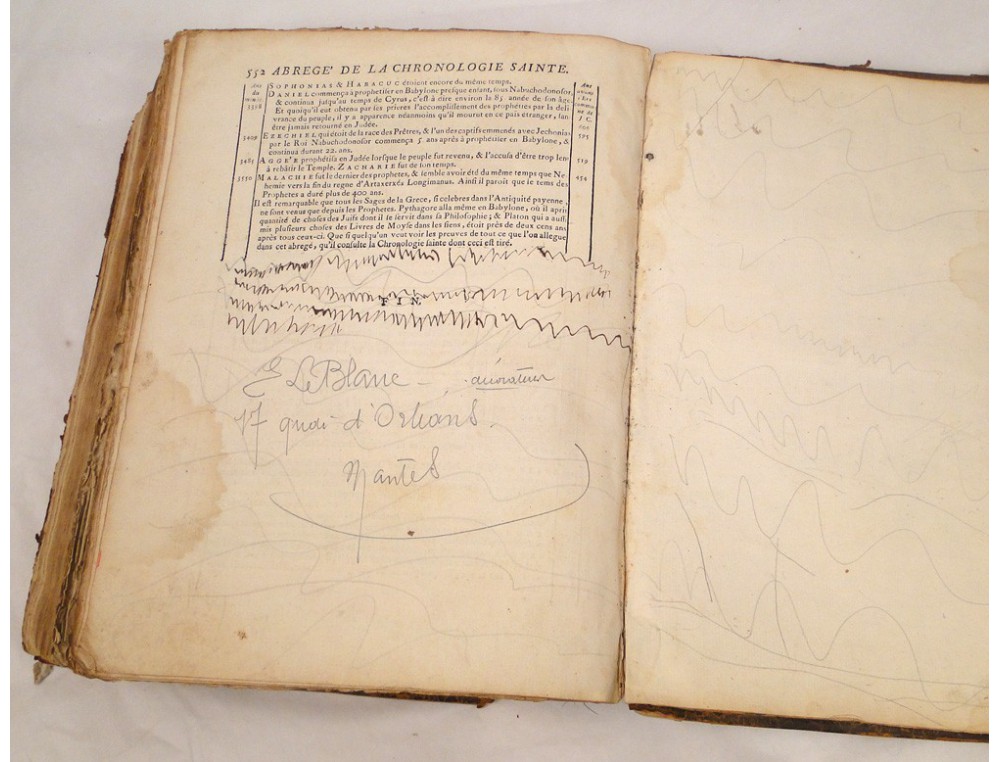 552 ABREGE' DE LA CHRONOLOGIE SAINTE.
SOPHONIAS & HABACUC étoient encore du même temps.
DANIEL commença à prophetiser en Babylone presque enfant, sous Nabuchodonosor,
& continua jusqu'au temps de Cyrus, c'est à dire environ la 85 année de son âge.
Et quoiqu'il eut obtenu par ses prieres l'accomplissement des propheties par la deli-
vrance du peuple, il y a apparence néanmoins qu'il mourut en ce païs étranger, sans
être jamais retourné en Judée.
3409 EZECHIEL qui étoit de la race des Prêtres, & l'un des captifs emmenés avec Jechonias 595
par le Roi Nabuchodonosor commença 5 ans après à prophétiser en Babylone, &
continua durant 22. ans.
3485 AGGÉE prophétisa en Judée lorsque le peuple fut revenu, & l'accusa d'être trop lent 519
à rebâtir le Temple. ZACHARIE fut de son temps.
3550 MALACHIE fut le dernier des prophetes, & semble avoir été du même temps que Ne- 454
hemie vers la fin du regne d'Artaxerxés Longimanus. Ainsi il paroit que le tems des
Prophetes a duré plus de 400 ans.
Il est remarquable que tous les Sages de la Grece, si celebres dans l'Antiquité payenne,
ne sont venus que depuis les Prophetes. Pythagore alla même en Babylone, où il aprit
quantité de choses des Juifs dont il se servit dans sa Philosophie; & Platon qui a aussi
mis plusieurs choses des Livres de Moyse dans les siens, étoit près de deux cens ans
après tous ceux-ci. Que si quelqu'un veut voir les preuves de tout ce que l'on allegue
dans cet abregé, qu'il consulte la Chronologie sainte dont ceci est tiré.
FIN
E LeBlanc - décorateur
17 quai d'Orléans.
Nantes